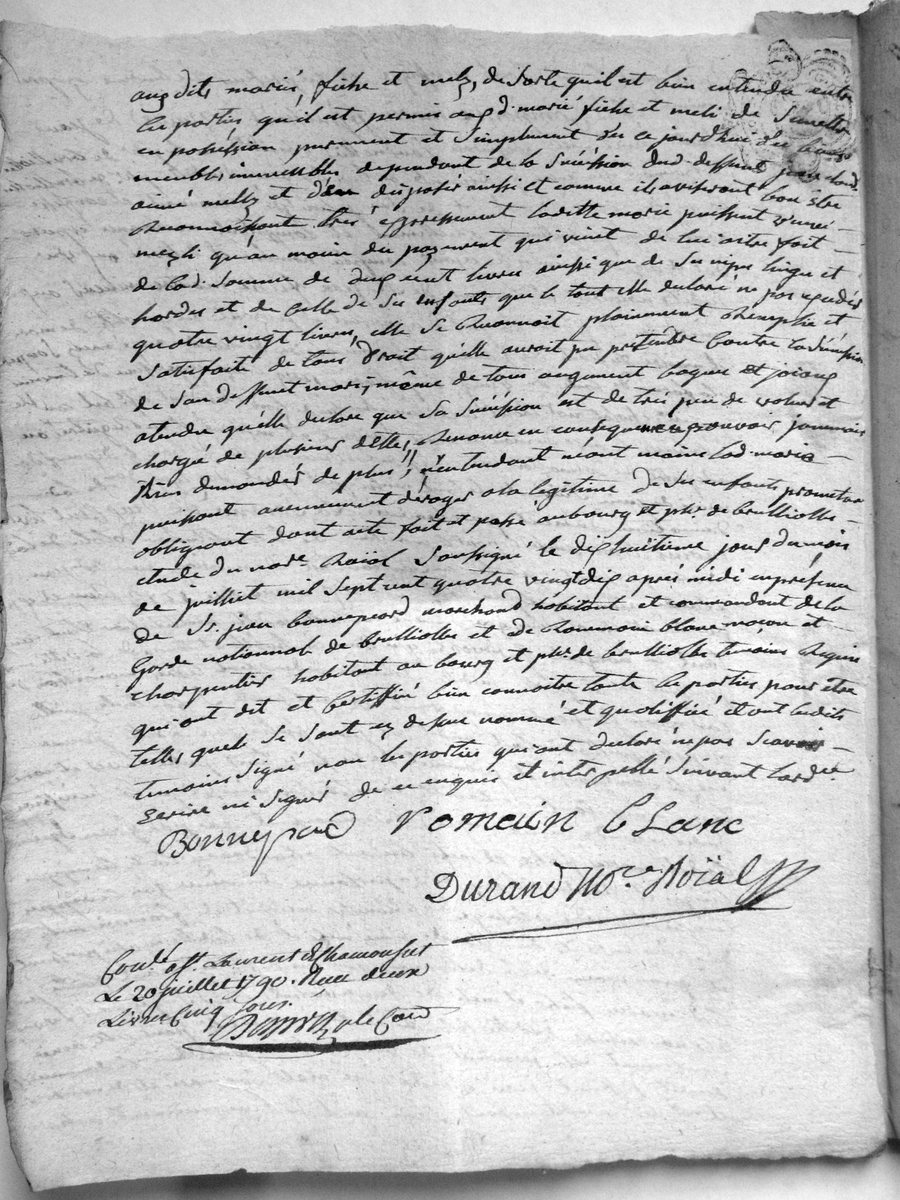 aux dits mariés, fiche et melly, de sorte quil est bien entendu entre
les parties quil est permis aux d. marié fiche et meli de se mettre
en possession purement et simplement des ce jourdhui des biens
meubles immeubles dependant de la succession dud. deffunt jean claude
aimé melly et den disposér ainsi et comme ils aviseront bon être
Reconnoissant très expressement laditte marie
qu'au moien du payement qui vient de lui être fait
de lad. Somme de deux cent livres ainsi que de ses nipes linge et
hardes et de celle de ses enfants que le tout elle declare ne pas exceder
quatre vingt livres, elle se Reconnoit plainement Remplie et
Satisfaite de tous droit qu'elle auroit pu pretendre contre la succession
de son deffunt mari, même de tous augment bagues et joiaux
atendu qu'elle declare que sa succession est de très peu de valeur et
chargée de plusieurs dettes, Renonce en consequence pouvoir jammais
Rien demander de plus, n'entendant néant moins lad. marie
aucunement déroger a la legitime de ses enfants promettan
obligeant dont acte fait et passé au bourg et psse. de brullioles
etude du nore. Roïal soussigné le dix huitieme jour du mois
de juilliet mil sept cent quatre vingt dix après midi en présence
de Sr. jean bonnepard marchand habitant et commandant de la
Garde nationnal de brullioles et de Roumain blanc maçon et
charpentier habitant au bourg et psse. de brullioles temoins Requis
qui ont dit et certiffié bien connoitre toute les parties pour être
telles quels se sont cy dessus nommé et qualiffié et ont lesdits
temoins signé non les parties qui ont declaré ne pas scavoir
Ecrire ni signér de ce enquis et interpellé suivant lordce
Bonnepard romain blanc
Durand No.re Roïal
Conlé. a St. Laurent de Chamousset
Le 20 juillet 1790. Reçu deux
Livres Cinq Sous.